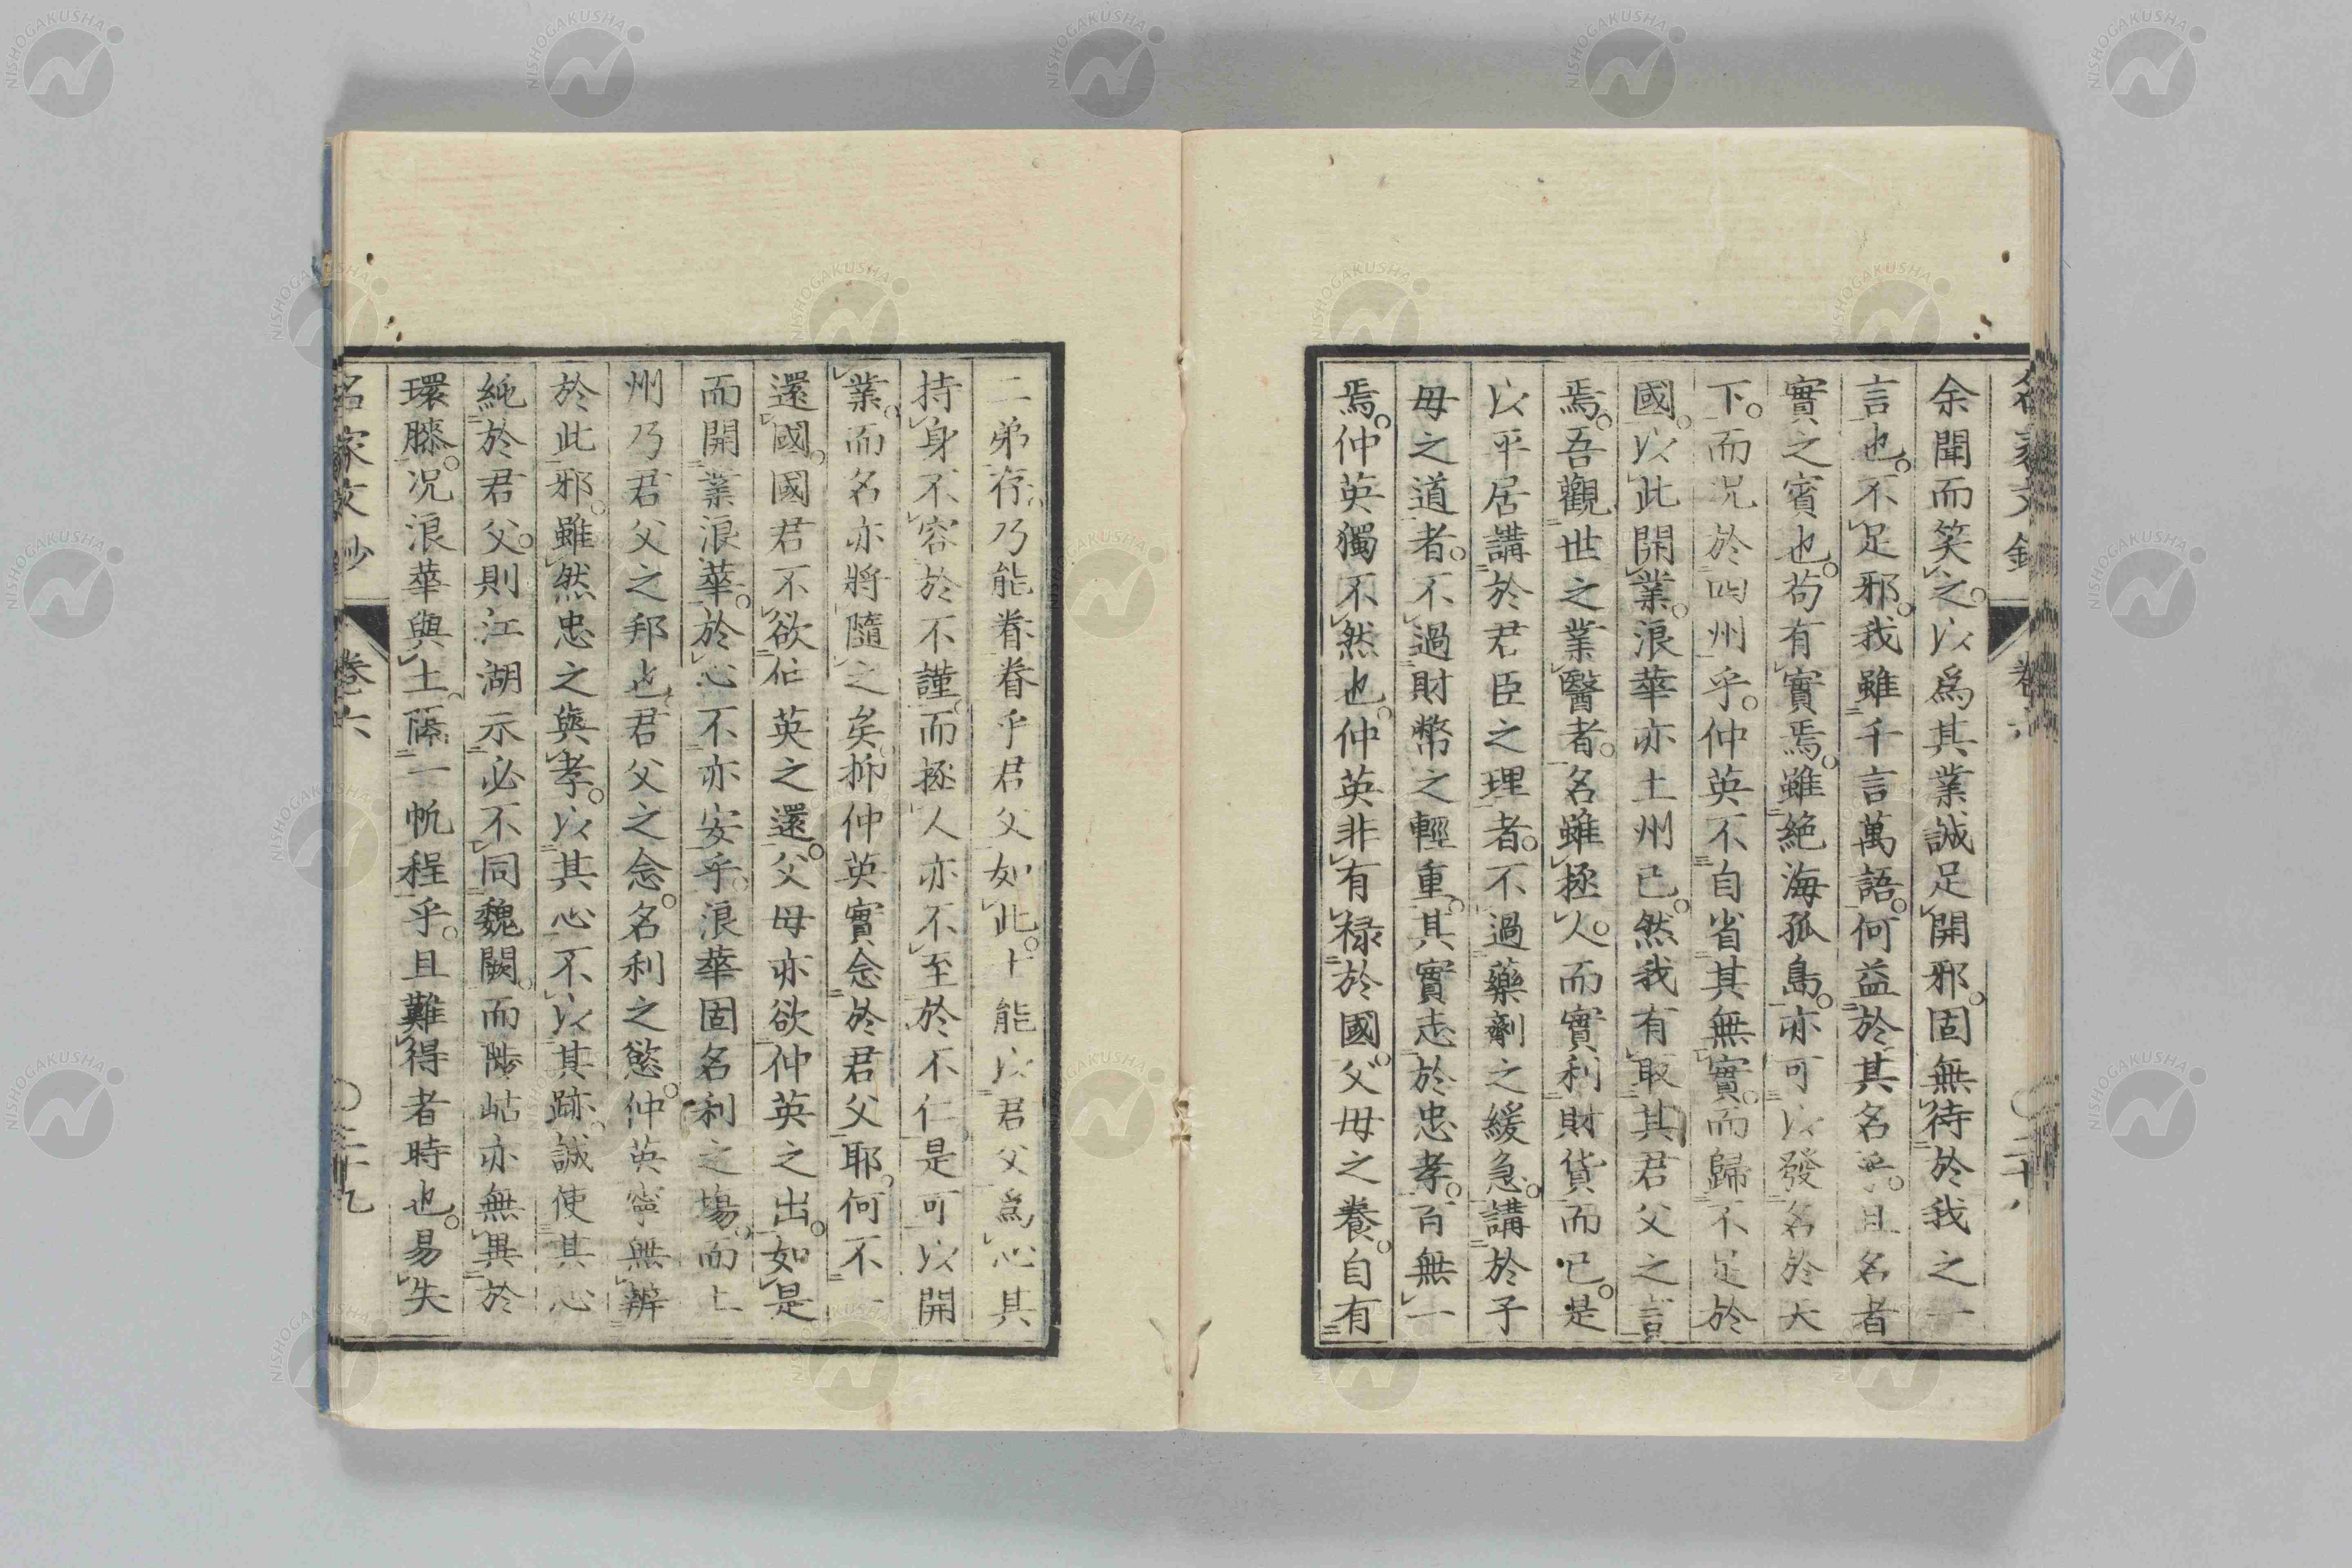 余聞而笑之。以爲其業誠足開邪。固無待於我之一
言也。不足邪。我雖千言萬語。何益於其名乎。且名者
實之賓也。苟有實焉。雖絶海孤島。亦可以發名於天
下。而况於四州乎。仲英不自省其無實。而歸不足於
國。以此開業。浪華亦土州已。然我有取其君父之言
焉。吾觀世之業醫者。名雖拯人。而實利財貨而已。是
以平居講於君臣之理者。不過藥劑之緩急。講於子
母之道者。不過財幣之輕重。其實志於忠孝。百無一
焉。仲英獨不然也。仲英非有祿於國。父母之養。自有
二弟存。乃能眷眷乎君父如此。士能以君父爲心。其
持身不容於不謹。而拯人亦不至於不仁。是可以開
業。而名亦將隨之矣。抑仲英實念於君父耶。何不一
還國。國君不欲仲英之還。父母亦欲仲英之出。如是
而開業浪華。於心不亦安乎。浪華固名利之場。而土
州乃君父之邦也。君父之念。名利之慾。仲英寧無辨
於此邪。雖然忠之與孝。以其心不以其跡。誠使其心
純於君父。則江湖示必不同魏闕。而陟岵亦無異於
環膝。况浪華與土。隔一帆程乎。且難得者時也。易失
名家文抄 卷六 〇二十九